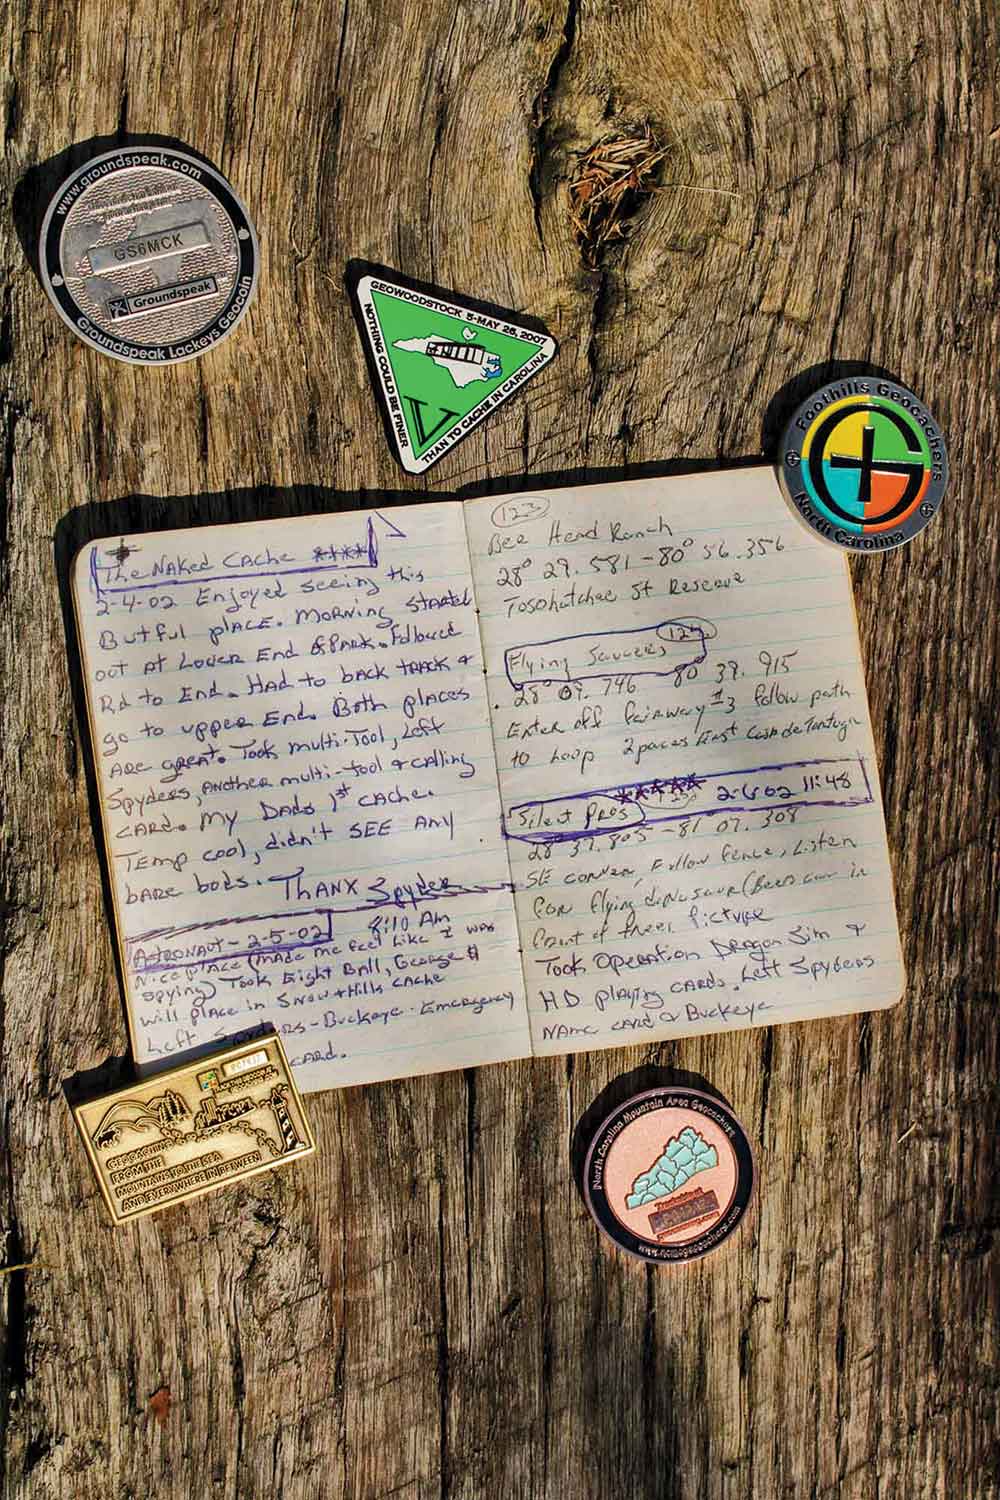 www.groundspeak.com
GS6MCK
Groundspeak
Groundspeak Lackeys Geocoin
GEOWOODSTOCK 5-MAY 26, 2007
NOTHING COULD BE FINER
THAN TO CACHE IN CAROLINA
V
Foothills Geocachers
North Carolina
The Naked Cache ****
2-4-02 Enjoyed seeing this
Butful place. Morning started
out at Lower End of Park. Followed
Rd to End. Had to back track &
go to upper End. Both places
are great. Took multi-Tool, Left
Spyders, Another multi-tool & calling
card. My Dads 1st cache.
Temp cool, didn't SEE Any
bare bods. Thanx Spyder
Astronaut - 2-5-02 8:10 Am
Nice place (made me feel like I was
spying) Took Eight Ball, George $
will place in Snow & Hills cache
Left Spyders - Buckeye - Emergency
card.
123
Bee Head Ranch
28° 29. 581 - 80° 56. 356
Tosohatchee St Reserve
Flying Saucers
28° 09. 746 80° 39. 915
Enter off fairway #3 follow path
to hoop 2 paces East
Silent Pros ***** 2-6-02 11:48
28 37. 805 - 81 07. 308
SE corner, Follow fence, Listen
for flying dinosaur (Been in
front of trees picture
Took Operation Dragon Sim &
HD playing cards. Left Spyders
Name card & Buckeye
GEOCACHING
FROM THE
MOUNTAINS TO THE SEA
AND EVERYWHERE IN BETWEEN
North Carolina Mountain Area Geocachers
Trackable at